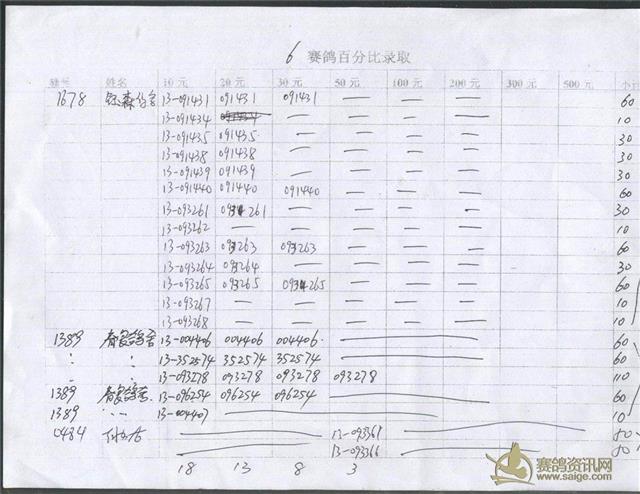 6 赛鸽百分比录取
棚号 姓名 10元 20元 30元 50元 100元 200元 300元 500元 小计
1678 13-091431 091431 091431 — — — 60
13-091434 — — — — 10
13-091435 091435 — — — — 30
13-091438 091438 — — — — 30
13-091439 091439 — — — — 30
13-091440 091440 091440 — — — 60
13-093261 093261 — — — — 30
13-093262 — — — — — 10
13-093263 093263 093263 — — — 60
13-093264 093264 — — — — 30
13-093265 093265 093265 — — — 60
13-093267 — — — — — 10
13-093268 — — — — — 10
1389 13-004406 004406 004406 60
13-352574 352574 352574 60
13-093278 093278 093278 093278 110
1389 13-096254 096254 096254 60
1389 13-004407 10
0484 13-093369 50
13-093366 50
18 13 8 3
赛鸽资讯网
www.saige.com